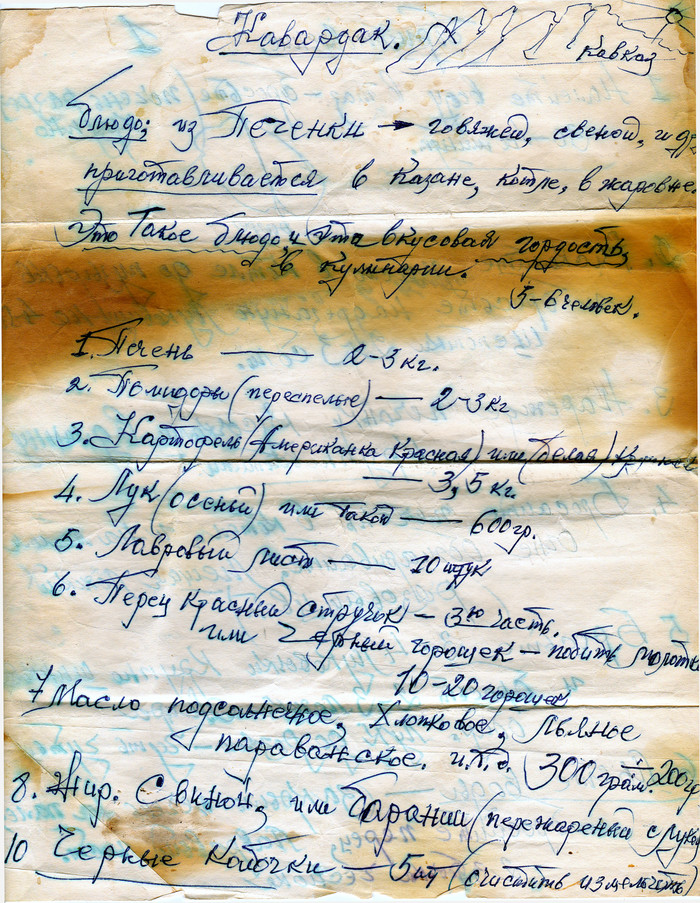 Кавардак.
Кавказ
блюдо; из Печенки → говяжей, свеной, и др.
приготавливается в Казане, котле, в жаровне.
Это Такое блюдо, и Эта вкусовая гордость,
в кулинарии.
5-6 человек.
1. Печень —— 2-3 кг.
2. Помидоры (переспелые) — 2-3 кг
3. Картофель (Американка Красная) или (белая)
— 3,5 кг.
4. Лук (осеный) или такой — 600 гр.
5. Лавровый лист — 10 штук
6. Перец Красный стручок — 3ю часть.
или Черный горошек — побить молотк
10-20 горошек
7 Масло подсолнечное, Хлопковое, Льяное
параванское. и.т.д. 300 грам. ÷ 200 гр
8. Жир. Свиной, или Бараний (пережареный с Луком
10 Черные Косточки — 5 шт (счистить измельчить)